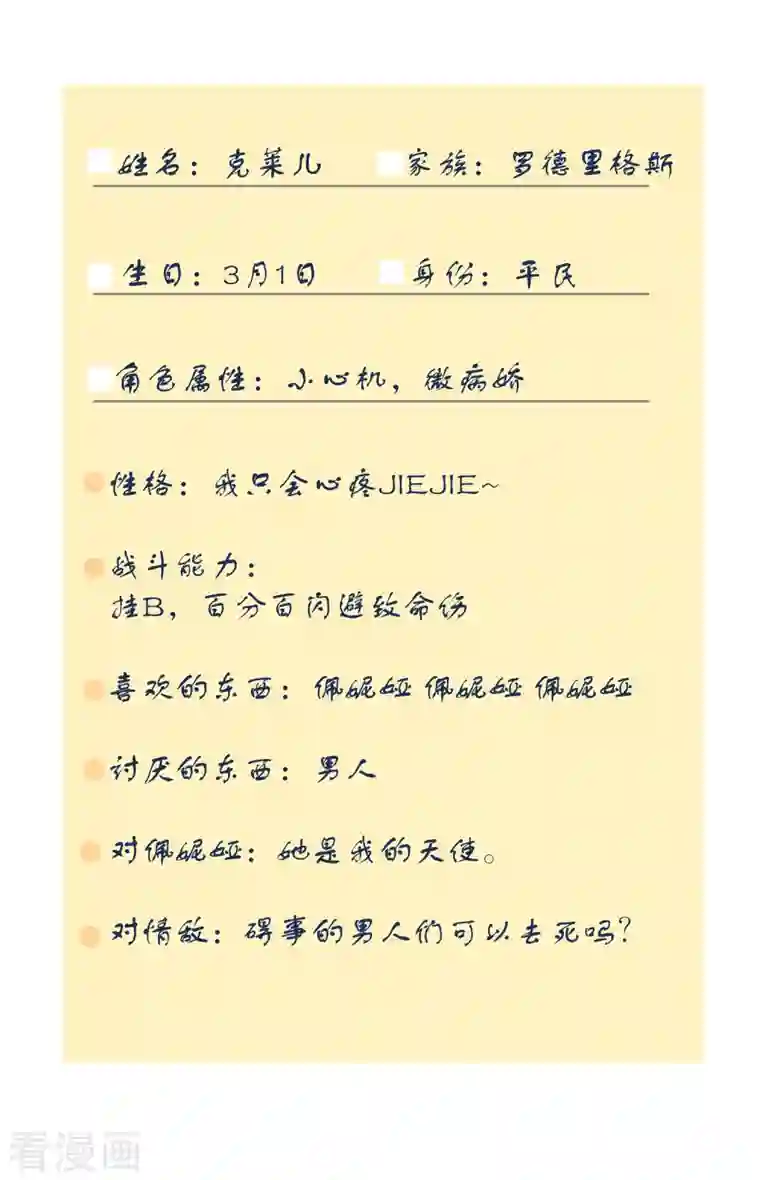 姓名：克莱儿 家族：罗德里格斯
生日：3月1日 身份：平民
角色属性：小心机，微病娇
性格：我只会心疼JIEJIE~
战斗能力：
挂B，百分百闪避致命伤
喜欢的东西：佩妮娅 佩妮娅 佩妮娅
讨厌的东西：男人
对佩妮娅：她是我的天使。
对情敌：碍事的男人们可以去死吗？
看漫画